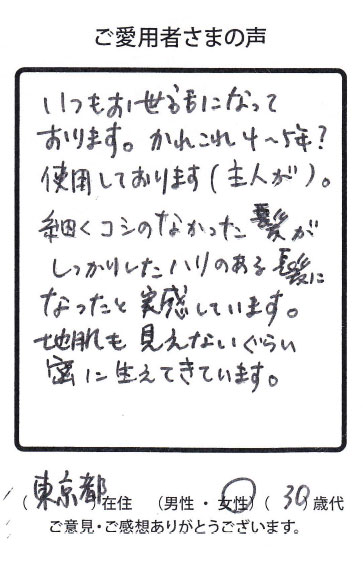 ご愛用者さまの声
いつもお世話になって
おります。かれこれ4~5年?
使用しております(主人が)。
細くコシのなかった髪が
しっかりしたハリのある髪に
なったと実感しています。
地肌も見えないぐらい
密に生えてきています。
(東京都)在住 (男性・女性)(30)歳代
ご意見・ご感想ありがとうございます。